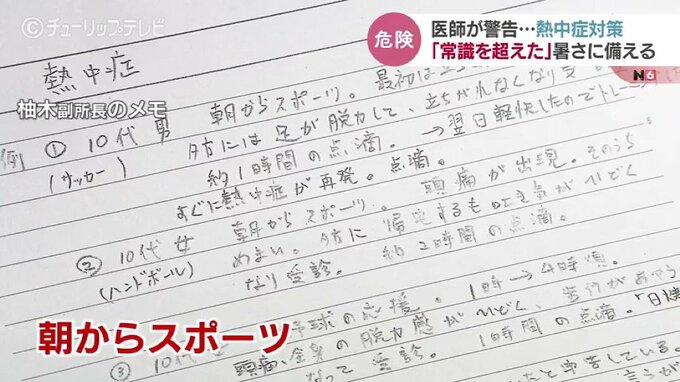 ©チューリップテレビ
危険
医師が警告…熱中症対策
「常識を超えた」暑さに備える
N6
熱中症
柚木副所長のメモ
例 ① 10代 男 朝からスポーツ。最初は立ち
(サッカー) 夕方には足が脱力して、立ちがれなくなり受
約1時間の点滴。→翌日軽快したのでトレー
すぐに熱中症が再発。点滴。
② 10代 女 朝からスポーツ。頭痛が出現。そのうち
(ハンドボール) めまい。夕方に帰宅するも吐き気がひどく
なり受診。約2時間の点滴。
③ 10代 球の応援。1時→4時頃。
頭痛、全身の脱力感がひどく、歩行が
なって受診。1時間の点滴。「日
朝からスポーツ